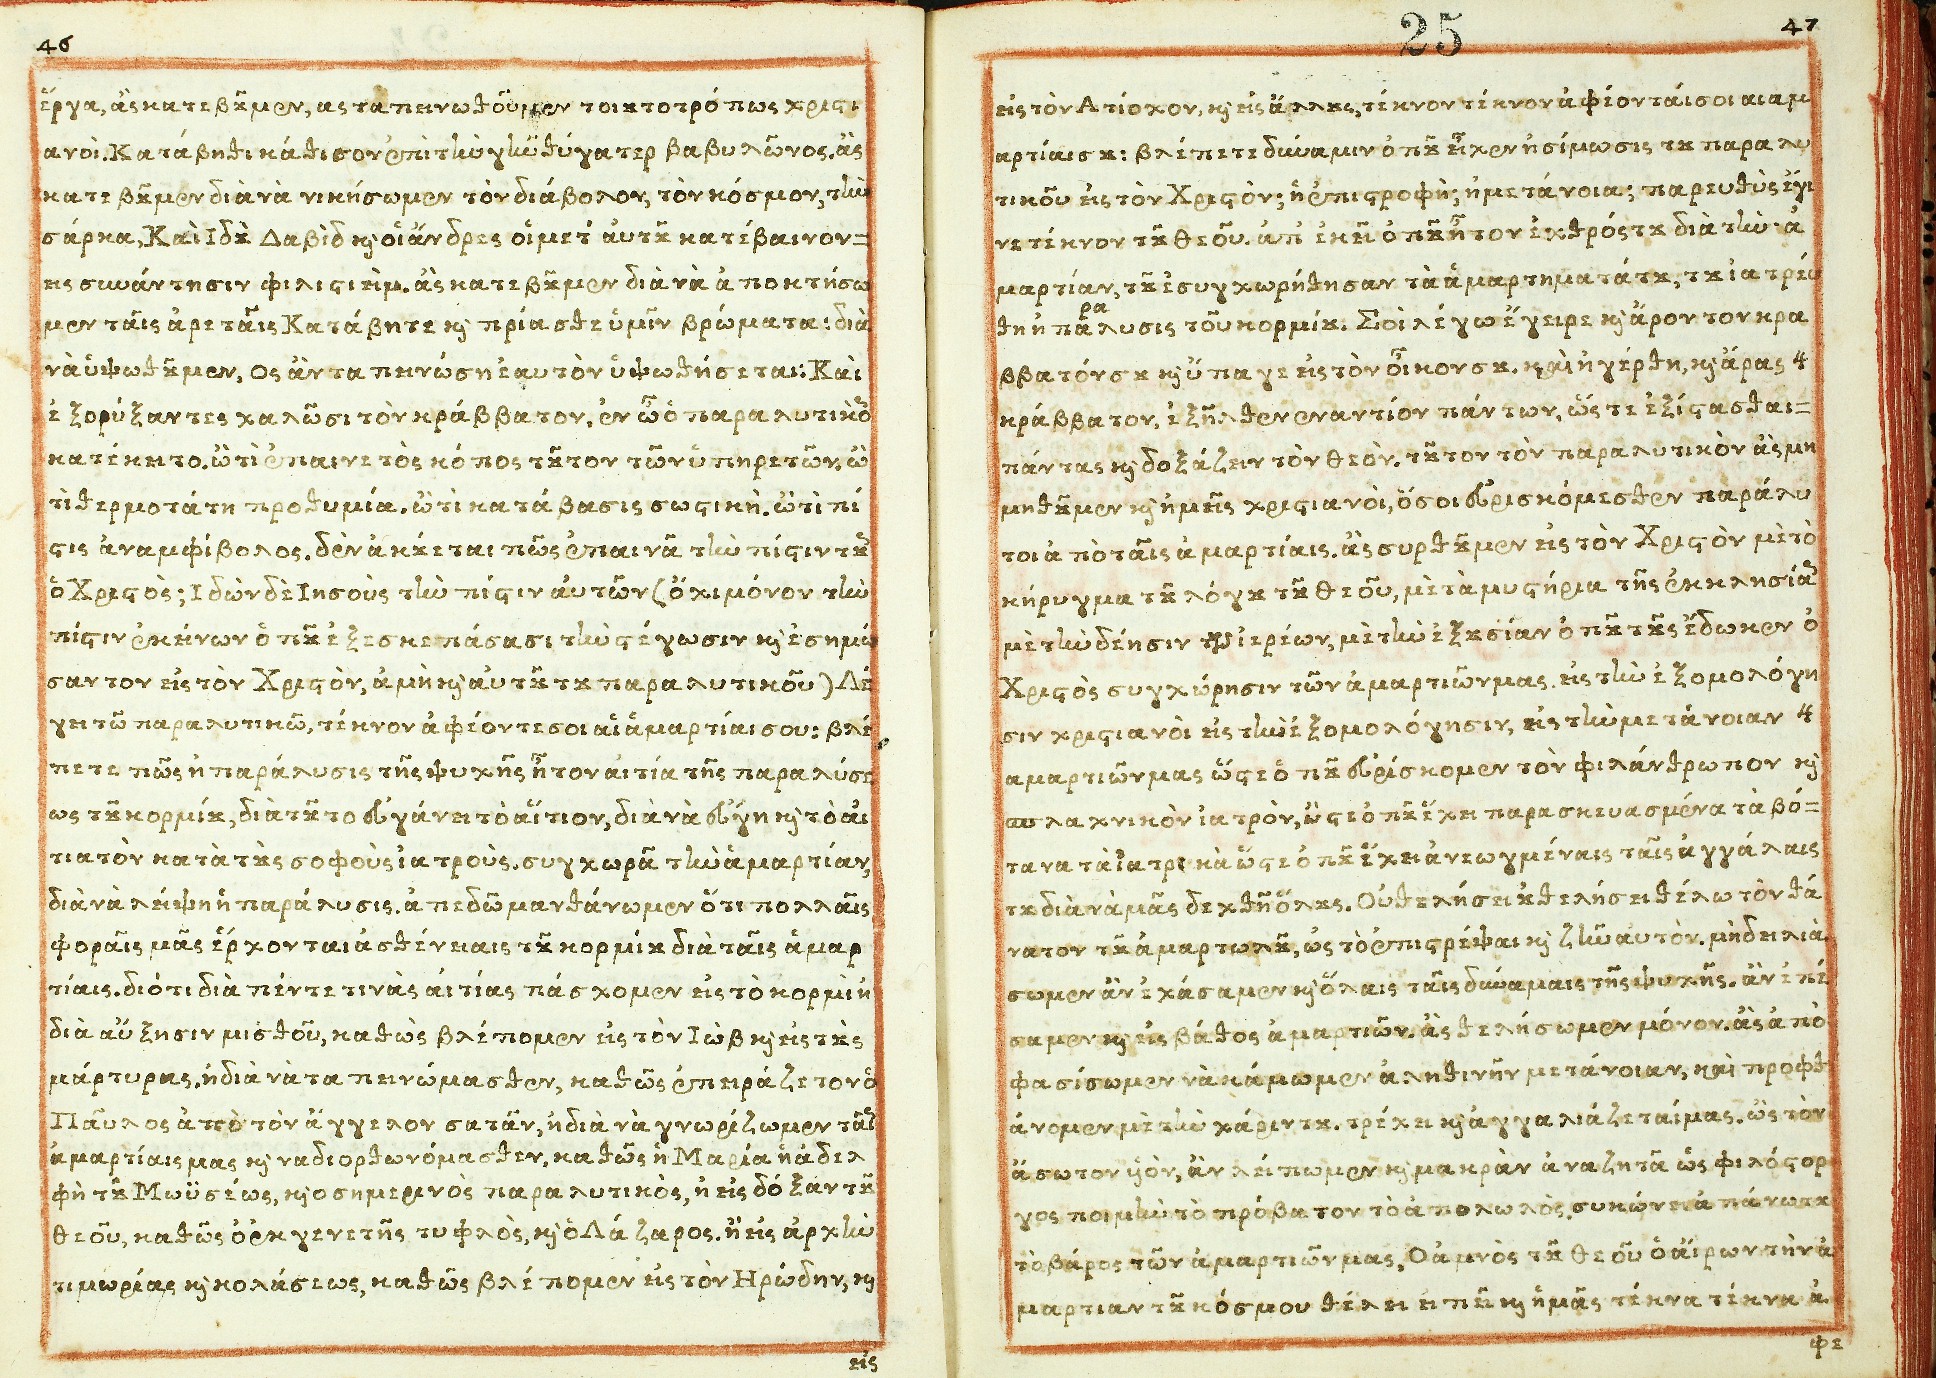 46
ἔργα, ἂς κατεβοῦμεν, ας ταπεινωθοῦμεν τοιουτοτρόπως χριστι
ανοὶ. Κατάβηθι κάθισον ἐπὶ τὴν γῆν θύγατερ βαβυλῶνος. ἂς
κατεβοῦμεν διὰ νὰ νικήσωμεν τὸν διάβολον, τὸν κόσμον, τὴν
σάρκα, Καὶ Ιδοὺ Δαβὶδ καὶ οἱ ἄνδρες οἱ μετ' ἀυτοῦ κατέβαινον=
εις συνάντησιν φιλιστιεὶμ. ἂς κατεβοῦμεν διὰ νὰ ἀποκτήσω
μεν ταῖς ἀρεταῖς Κατάβητε καὶ πρίασθε ὑμῖν βρώματα: διὰ
νὰ ὑψωθοῦμεν, Ος ἂν ταπεινώση ἑαυτὸν ὑψωθήσεται: Καὶ
ἐξορύξαντες χαλῶσι τὸν κράββατον, ἐν ὧ ὁ παραλυτικὸς
κατέκειτο. ὢ τὶ ἐπαινετὸς κόπος τοῦτον τῶν ὑπηρετῶν, ὢ
τὶ θερμοτάτη προθυμία. ὢ τὶ κατάβασις σωστικὴ. ὢ τὶ πί
στις ἀναμφίβολος. δὲν ἀκούεται πῶς ἐπαινᾶ τὴν πίστιν τους
ὁ Χριστὸς; Ιδὼν δὲ Ιησοὺς τὴν πίστιν ἀυτῶν (ὄχι μόνον τὴν
πίστιν ἐκείνων ὁποῦ ἐξεσκεπάσασι τὴν στέγωσιν καὶ ἐσημώ
σαν τον εἰς τὸν Χριστὸν, ἀμὴ καὶ ἀυτοῦ του παραλυτικοῦ) Λέ
γει τῶ παραλυτικῶ, τέκνον ἀφέοντε σοι αἱ ἁμαρτίαι σου: βλέ
πετε πῶς ἡ παράλυσις τῆς ψυχῆς ἦτον αἰτία τῆς παραλύσε
ως τοῦ κορμίου, διὰ τοῦτο ἐυγάνει τὸ ἄιτιον, διὰ νὰ ἐύγη καὶ τὸ ἀι
τιατὸν κατὰ τοὺς σοφοὺς ἰατροὺς. συγχωρᾶ τὴν ἁμαρτίαν,
διὰ νὰ λείψη ἡ παράλυσις. ἀπεδῶ μανθάνωμεν ὅτι πολλαῖς
φοραῖς μᾶς ἔρχονται ἀσθένειαις τοῦ κορμίου διὰ ταῖς ἁμαρ
τίαις. διότι διὰ πέντε τινὰς ἀιτίας πάσχομεν εἰς τὸ κορμὶ ἡ
διὰ αὔξησιν μισθοῦ, καθὼς βλέπομεν εἰς τὸν Ιὼβ καὶ εἰς τοὺς
μάρτυρας. ἡ διὰ νὰ ταπεινώμασθεν, καθῶς ἐπειράζετον ὁ
Παῦλος ἀπὸ τὸν ἄγγελον σατᾶν, ἡ διὰ νὰ γνωρίζωμεν ταῖς
ἁμαρτίαις μας καὶ να διορθωνόμασθεν, καθῶς ἡ Μαρία ἡ ἀδελ
φὴ τοῦ Μωϋσέως, καὶ ο σημερινὸς παραλυτικὸς, ἡ εἰς δόξαν τοῦ
θεοῦ, καθῶς ὁ ἐκ γενετῆς τυφλὸς, καὶ ὁ Λάζαρος. ἢ εἰς ἀρχὴν
τιμωρίας καὶ κολάσεως, καθῶς βλέπομεν εἰς τὸν Ηρώδην, καὶ
εἰς
25
47
εἰς τὸν Ατίοχον, καὶ εἰς ἄλλους, τέκνον τέκνον ἀφέονται σοι αι αμ
αρτίαι σου: βλέπετε δύναμιν ὁποῦ εἶχεν ἡ σίμωσις του παραλυ
τικοῦ εἰς τὸν Χριστὸν; ἡ ἐπιστροφὴ; ἡ μετάνοια; παρευθὺς ἔγι
νε τέκνον τοῦ θεοῦ. ἀπ' ἐκεῖ ὁποῦ ἦτον ἐχθρός του διὰ τὴν ἁ
μαρτίαν, τοῦ ἐσυγχωρήθησαν τὰ ἁμαρτηματά του, του ἰατρέυ
θη ἡ παράλυσις τοῦ κορμίου. Σοὶ λέγω ἔγειρε καὶ ἆρον τον κρα
ββατόν σου καὶ ὕπαγε εἰς τὸν οἶκον σου. καὶ ἠγέρθη, καὶ ἄρας τὸν
κράββατον, ἐξῆλθεν εναντίον πάντων, ὥστε ἐξίστασθαι=
πάντας καὶ δοξάζειν τὸν θεὸν. τοῦτον τὸν παραλυτικὸν ἂς μη
μηθοῦμεν καὶ ἡμεῖς χριστιανοὶ, ὅσοι ἐυρισκόμεσθεν παράλυ
τοι ἀπὸ ταῖς ἁμαρτίαις. ἂς συρθοῦμεν εἰς τὸν Χριστὸν μὲ τὸ
κήρυγμα τοῦ λόγου τοῦ θεοῦ, μὲ τὰ μυστήρια τῆς ἐκκλησίας
μὲ τὴν δέησιν τῶν ἱερέων, μὲ τὴν ἐξουσίαν ὁποῦ τοῦς ἔδωκεν ὁ
Χριστὸς συγχώρησιν τῶν ἁμαρτιῶν μας. εἰς τὴν ἐξομολόγη
σιν χριστιανοὶ εἰς τὴν ἐξομολόγησιν, εἰς τὴν μετάνοιαν τῶν
αμαρτιῶν μας ὥστε ὁποῦ ἐυρίσκομεν τὸν φιλάνθρωπον καὶ
σπλαχνικὸν ἰατρὸν, ὥστε ὁποῦ ἔχει παρασκευασμένα τὰ βό=
τανα τὰ ἰατρικὰ ὥστε ὁποῦ ἔχει ἀνεωγμέναις ταῖς ἀγγάλαις
του διὰ νὰ μᾶς δεχθῆ ὅλους. Οὐ θελήσει οὐ θελήσει θέλω τὸν θά
νατον τοῦ ἁμαρτωλοῦ, ὡς τὸ ἐπιστρέψαι καὶ ζῆν αυτὸν. μὴ δειλιά
σωμεν ἂν ἐχάσαμεν καὶ ὅλαις ταῖς δύναμαις τῆς ψυχῆς. ἂν ἐπέ
σαμεν καὶ εἰς βάθος ἁμαρτιῶν. ἂς θελήσωμεν μόνον. ἂς ἀπο
φασίσωμεν νὰ κάμωμεν ἀληθινὴν μετάνοιαν, καὶ προφθ
άνομεν μὲ τὴν χάριν του. τρέχει καὶ ἀγγαλιάζεταί μας. ὡς τὸν
ἄσωτον ὑιὸν, ἂν λείπωμεν καὶ μακρὰν ἀναζητᾶ ὡς φιλόστορ
γος ποιμὴν τὸ πρόβατον τὸ ἀπολωλὸς, συκώνει ἀπάνω του
τὸ βάρος τῶν ἁμαρτιῶν μας, Ο ἀμνὸς τοῦ θεοῦ ὁ ἄιρων τὴν ἁ
μαρτιαν τοῦ κόσμου θέλει ειπεῖ καὶ ἡμᾶς τέκνα τέκνα ἀ
φε